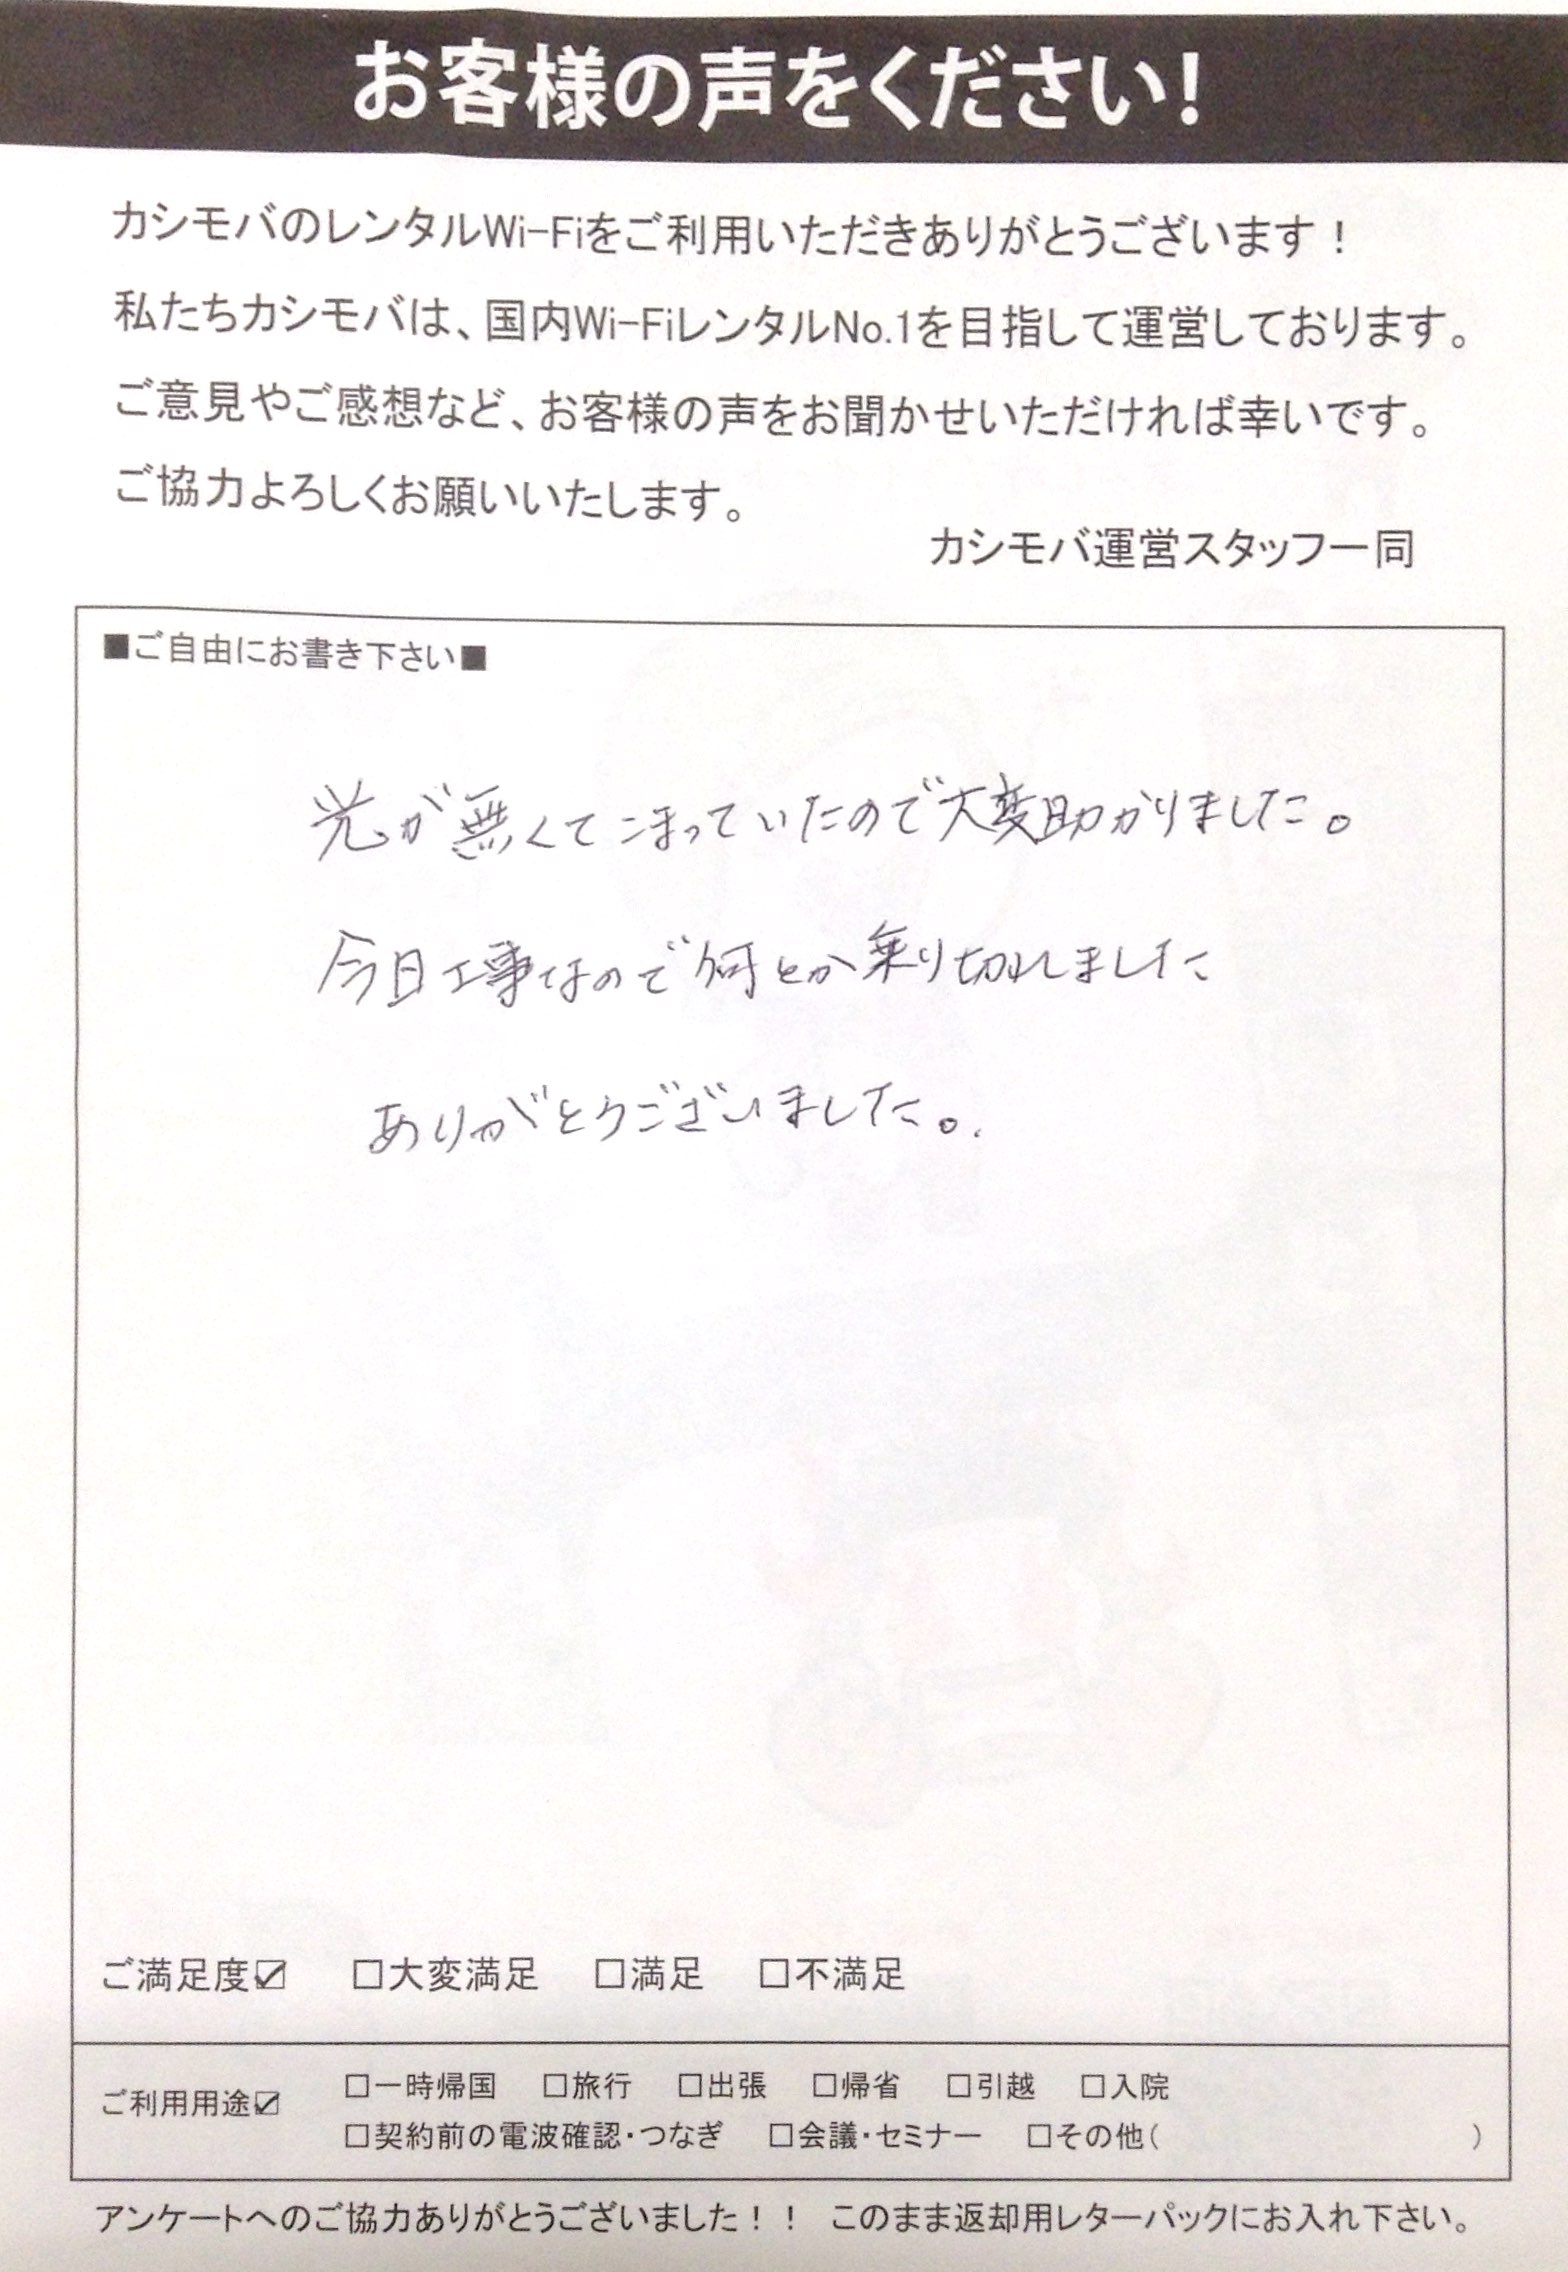 お客様の声をください!
カシモバのレンタルWi-Fiをご利用いただきありがとうございます！
私たちカシモバは、国内Wi-FiレンタルNo.1を目指して運営しております。
ご意見やご感想など、お客様の声をお聞かせいただければ幸いです。
ご協力よろしくお願いいたします。
カシモバ運営スタッフ一同
■ご自由にお書き下さい■
光が無くてこまっていたので大変助かりました。
今日工事なので何とか乗り切れしました
ありがとうございました。.
ご満足度☑ □大変満足 □満足 □不満足
ご利用用途☑ □一時帰国 □旅行 □出張 □帰省 □引越 □入院
□契約前の電波確認・つなぎ □会議・セミナー □その他( )
アンケートへのご協力ありがとうございました！！ このまま返却用レターパックにお入れ下さい。